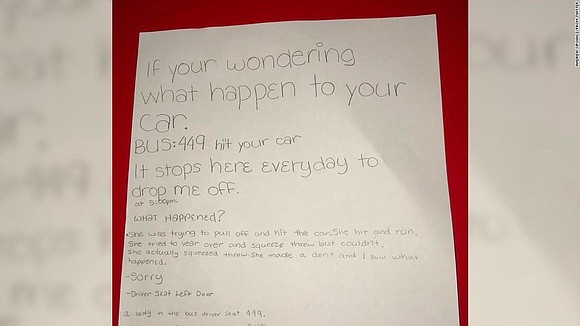 If your wondering
what happen to your
car.
BUS:449 hit your car
It stops here everyday to
drop me off.
at 5:00pm
WHAT HAPPENED?
She was trying to pull off and hit the car. She hit and run.
She tried to vear over and squeeze threw but couldn't.
She actually squeezed threw. She made a dent and I saw what
happened.
-Sorry
-Driver Seat Left Door
a lady in the bus driver seat 449.